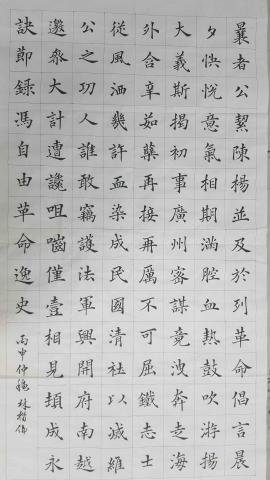 曩者公絜陳楊並及於列革命倡言晨
夕怏悅意氣相期滿腔血熱鼓吹游揚
大義斯揭初事廣州密謀竟洩奔走海
外含辛茹蘗再接再厲不可屈鐵志士
從風洒幾許血染成民國清社以滅維
公之功人誰敢竊護法軍興開府南越
邀參大計遭讒咀嚙僅壹相見頓成永
訣節錄馮自由革命逸史
丙申仲穐